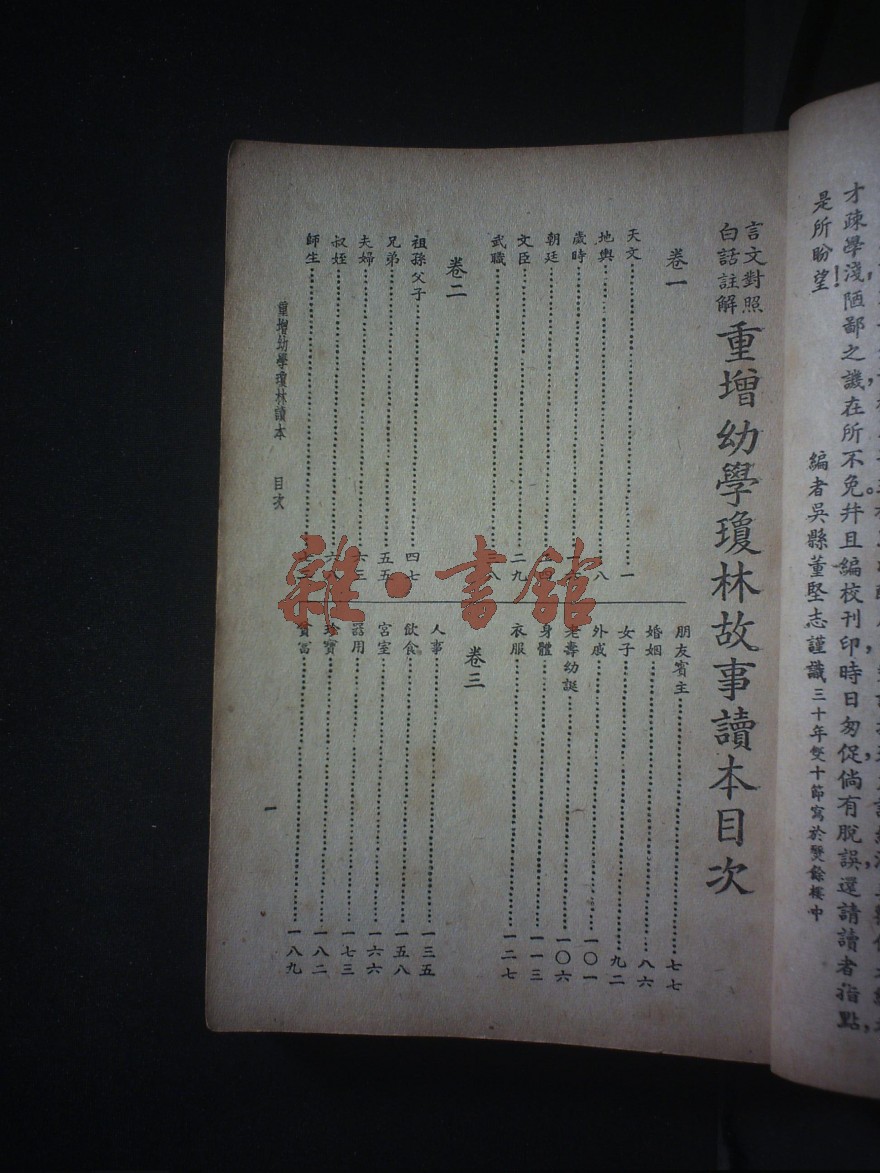 才疎學淺陋鄙之譏在所不免幷且編校刊印時日匆促倘有脫誤還請讀者指點,
是所盼望!
編者吳縣董堅志謹識 三十年雙十節寫於雙餘樓中
言文對照
白話註解
重增幼學瓊林故事讀本目次
卷一
天文 一
地輿 八
歲時
朝廷
文臣 二九
武職 八
卷二
祖孫父子 四七
兄弟 五五
夫婦 六三
叔姪 六
師生 七
朋友賓主 七七
婚姻 八六
女子 九二
外戚 一〇一
老壽幼誕 一〇六
身體 一一三
衣服 一二七
卷三
人事 一三五
飲食 一五八
宮室 一六六
器用 一七三
珍寶 一八二
貧富 一八九
重增幼學瓊林讀本 目次
一
雜·書館